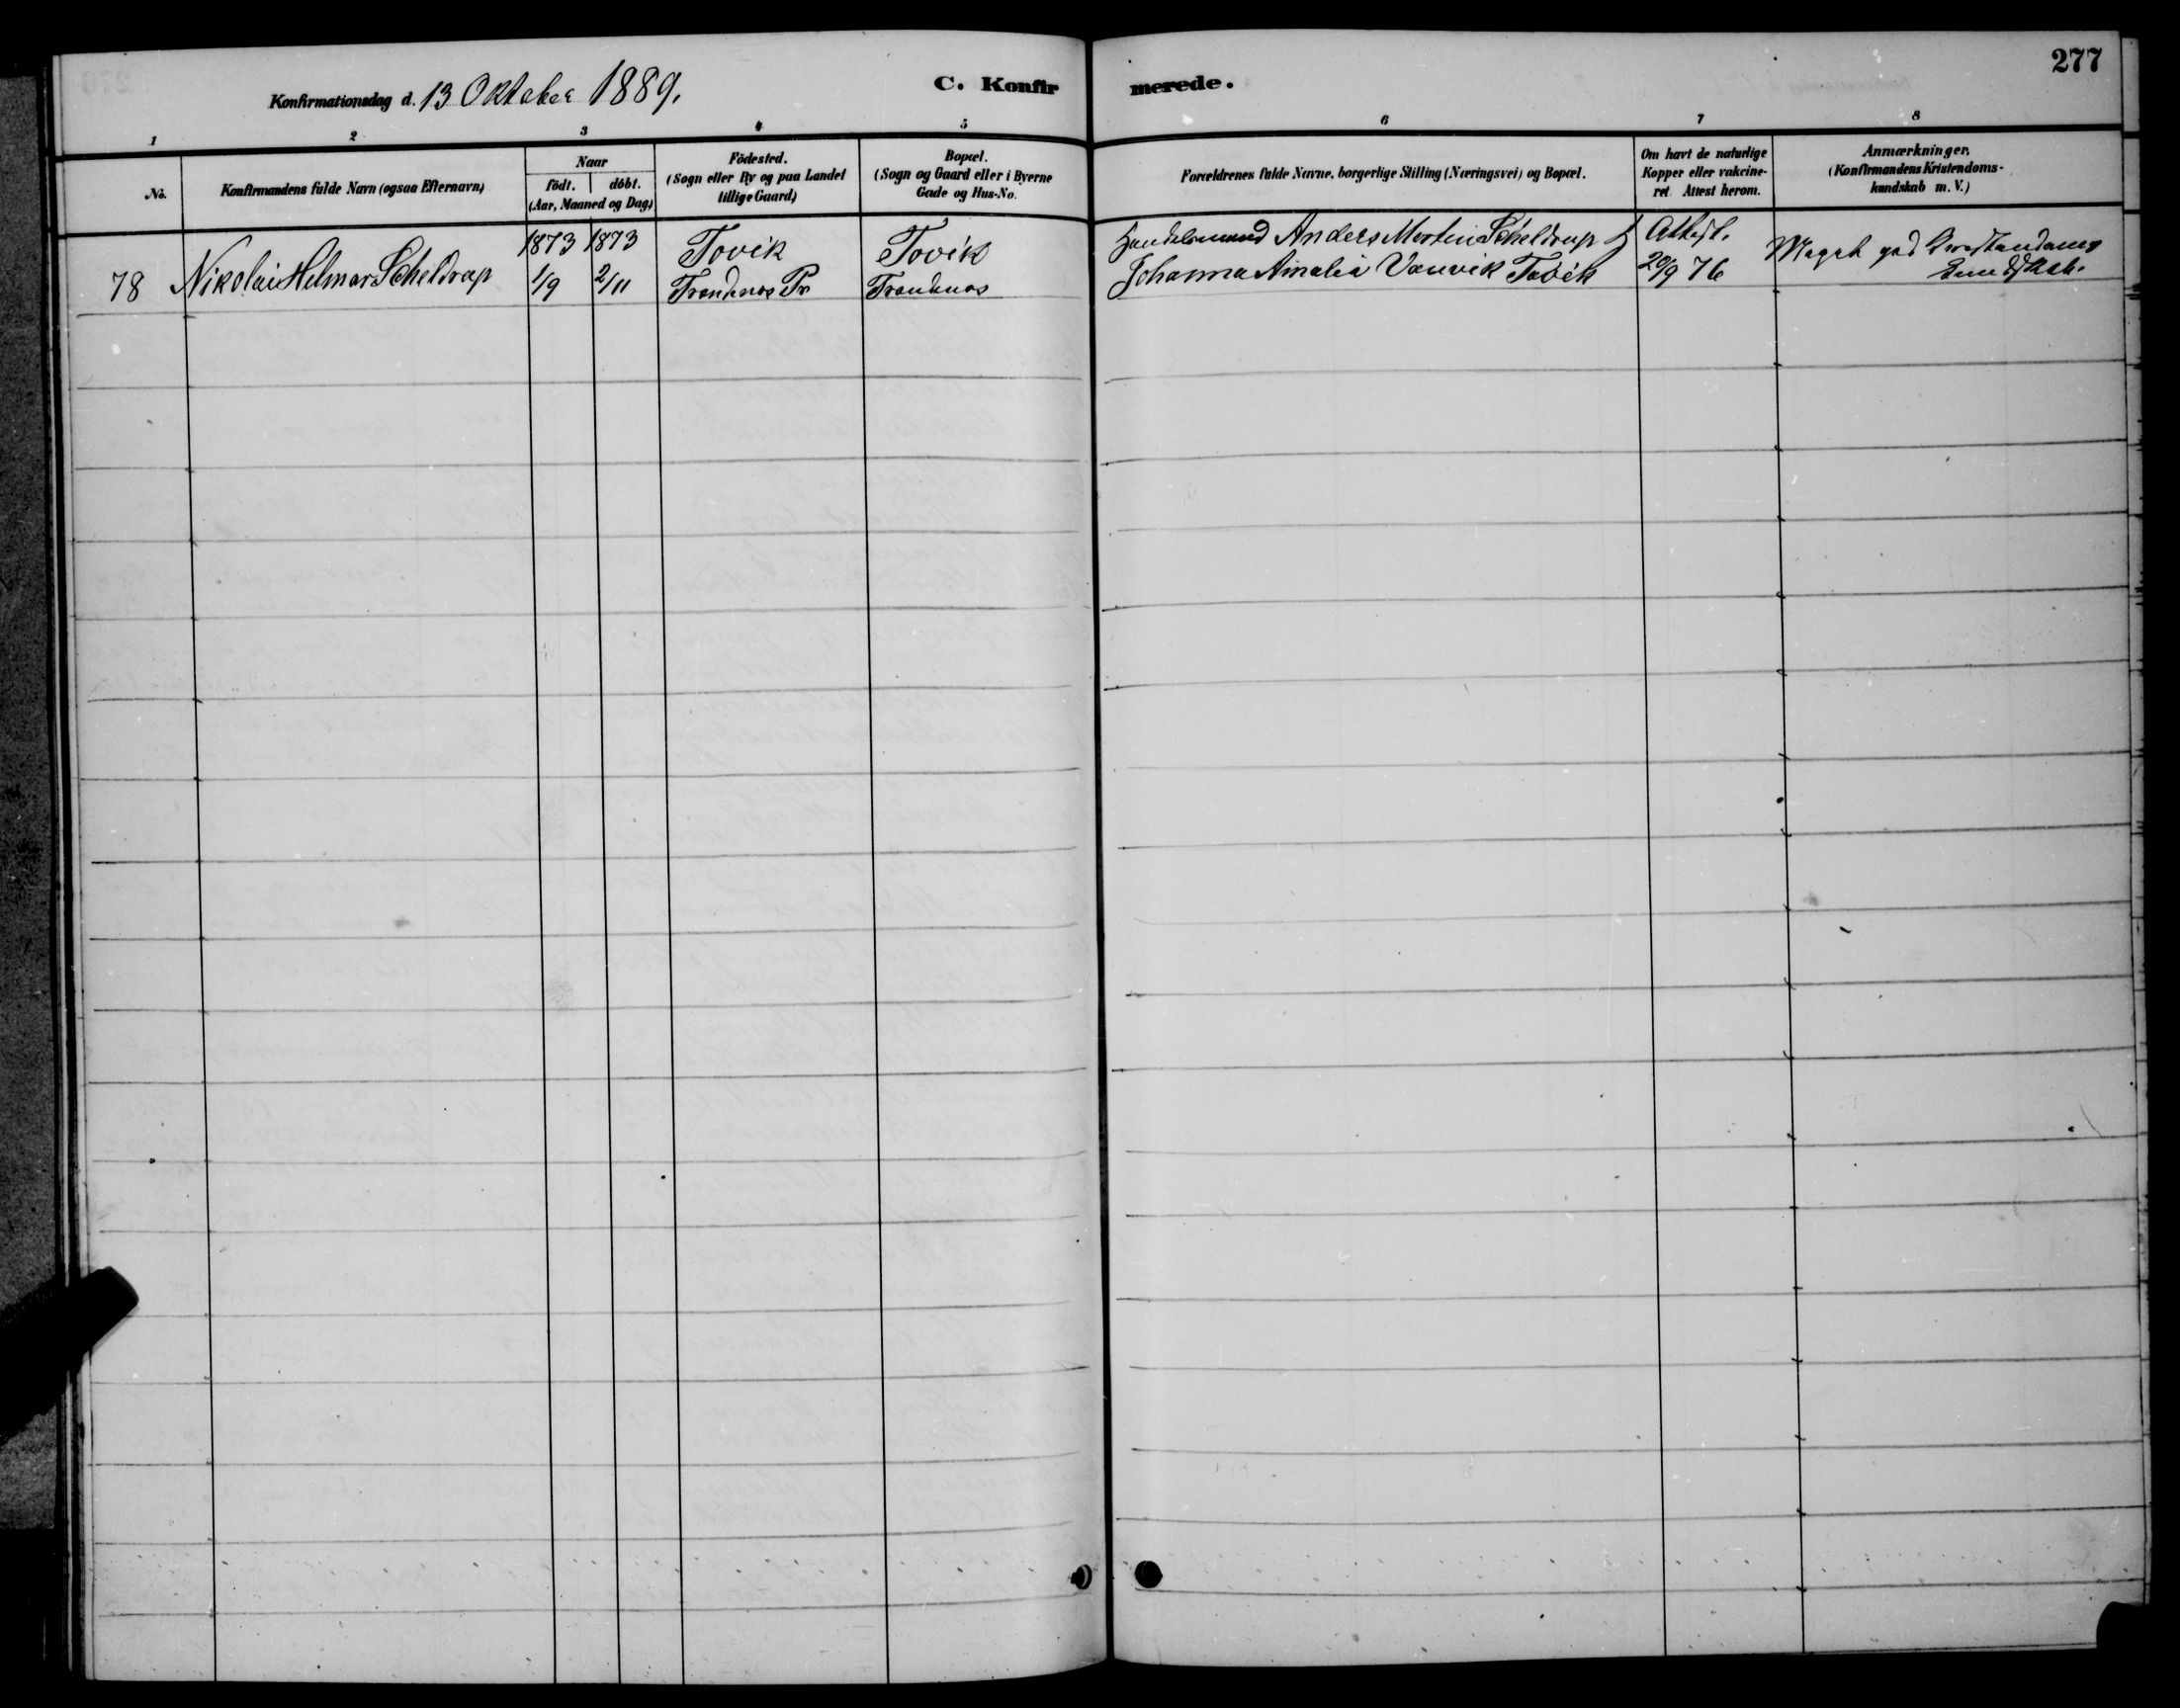 277
Konfirmationsdag d. 13 Oktober 1889.
C. Konfirmerede.
1 2 3 4 5 6 7 8
No.
Konfirmandens fulde Navn (ogsaa Efternavn)
Naar
födt. döbt.
(Aar, Maaned og Dag)
Födested.
(Sogn eller By og paa Landet
tillige Gaard)
Bopæl.
(Sogn og Gaard eller i Byerne
Gade og Hus-No.
Forældrenes fulde Navne, borgerlige Stilling (Næringsvei) og Bopæl.
Om havt de naturlige
Kopper eller vakcine-
ret. Attest herom.
Anmærkninger.
(Konfirmandens Kristendoms-
kundskab m. V.)
78
Nikolai Helmar Scheldrup
1873 1873
1/9 2/11
Tovik
Trondenes Pr
Tovik
Trondenes
Handelsmand Anders Morten Scheldrup &
Johanna Amalia Vanvik Tovik
Attest.
20/9 76
Meget god Kristendoms
Kundskab.